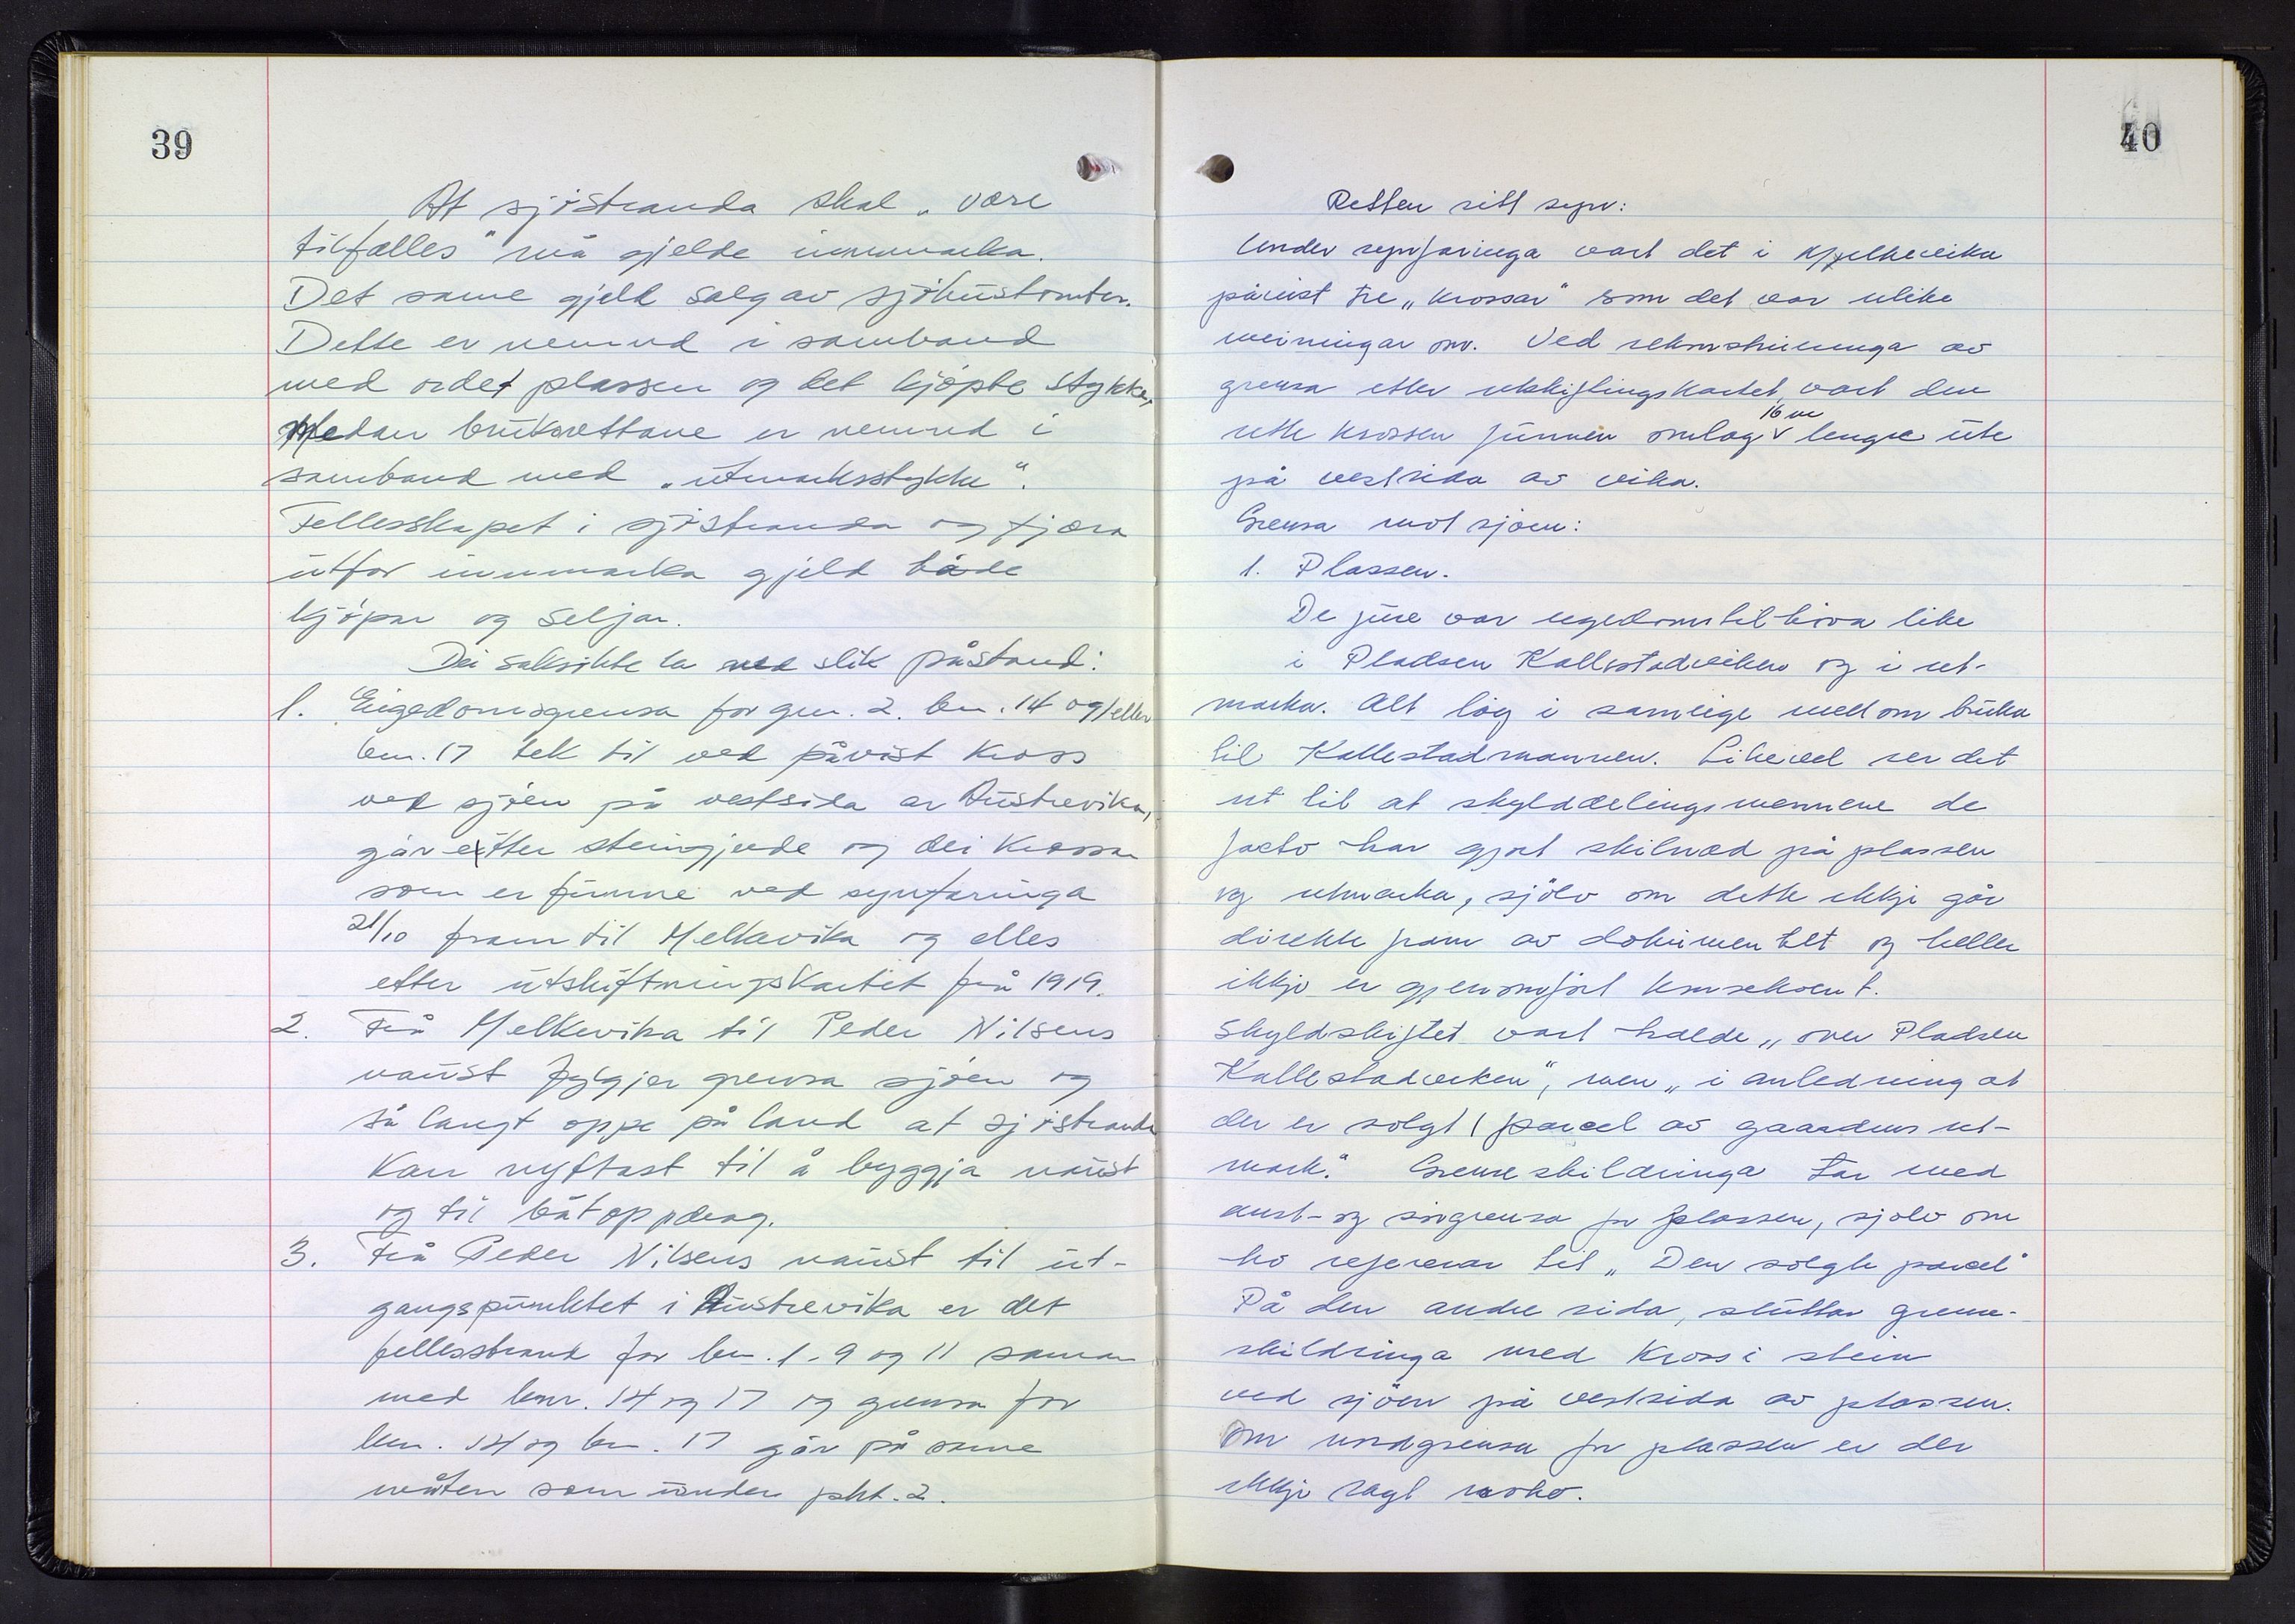 39
At sjöstranda skal „være
tilfælles" må gjelde innmarka.
Det same gjeld salg av sjöhustomter.
Dette er nemnd i samband
med ordet plassen og det kjöpte stykke,
Medan bruksrettane er nemnd i
samband med „utmarksstykke".
Fellesskapet i sjöstranda og fjæra
utfor innmarka gjeld både
kjöpar og seljar.
Dei saksökte la ned slik påstand:
1. Eigedomsgrensa for gnr. 2. bnr. 14 og/eller
bnr. 17 tek til ved påvist kross
ved sjöen på vestsida av Austrevika,
går etter steingjerde og dei krossar
som er funne ved synfaringa
21/10 fram til Melkevika og elles
etter utskiftningskartet frå 1919.
2. Frå Melkevika til Peder Nilsens
naust fylgjer grensa sjöen og
så langt oppe på land at sjöstranda
kan nyttast til å byggja naust
og til båtoppdrag.
3. Frå Peder Nilsens naust til ut-
gangspunktet i Austrevika er det
fellesstrand for bnr. 1-9 og 11 saman
med bnr. 14 og 17 og grensa for
bnr. 14 og bnr. 17 går på same
måten som under pkt. 2.
40
Retten sitt syn:
Under synfaringa vart det i Mjelkevika
påvist tre „krossar" som det var ulike
meiningar om. Ved rekonstruninga av
grensa etter utskiftingskartet vart den
rette krossen funnen omlag 16 m lengre ute
på vestsida av vika.
Grensa mot sjöen:
1. Plassen.
De jure var eigedomstilhöva like
i Pladsen Kallestadviken og i ut-
marka. Alt låg i sameige mellom bruka
til Kallestadmannen. Likevel ser det
ut til at skylddelingsmennene de
facto har gjort skilnad på plassen
og utmarka, sjölv om dette ikkje går
direkte fram av dokumentet og heller
ikkje er gjennomfört konsekvent.
Skyldskiftet vart halde „over Pladsen
Kallestadviken", men „i anledning at
der er solgt 1 parcel av gaardens ut-
mark." Grenseskildringa tar med
aust- og sörgrensa for plassen, sjölv om
ho refererar til „Den solgte parcel"
På den andre sida, sluttar grense-
skildringa med kross i stein
ved sjöen på vestsida av plassen.
Om nordgrensa for plassen er der
ikkje sagt noko.